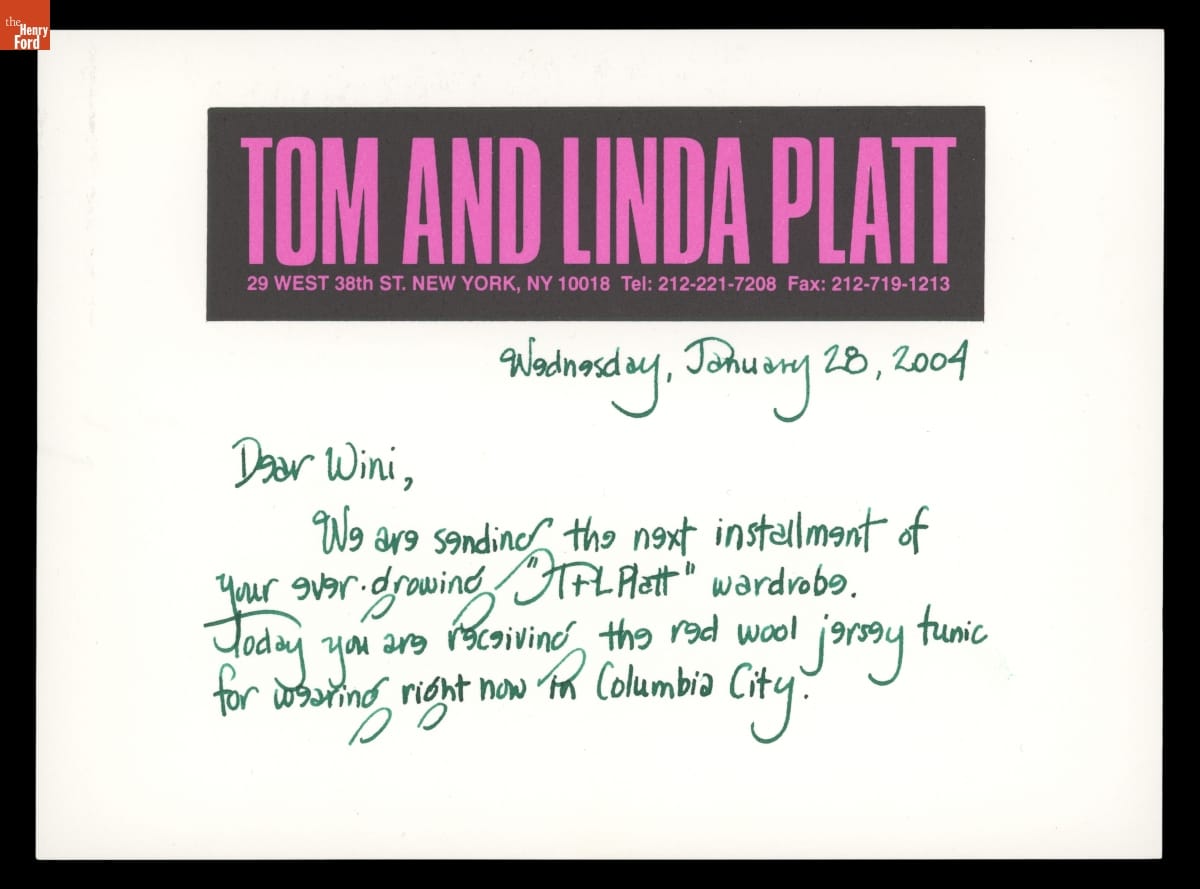 the
Henry
Ford
TOM AND LINDA PLATT
29 WEST 38th ST. NEW YORK, NY 10018 Tel: 212-221-7208 Fax: 212-719-1213
Wednesday, January 28, 2004
Dear Wini,
We are sending the next installment of
your ever-growing "T+L Platt" wardrobe.
Today you are receiving the red wool jersey tunic
for wearing right now in Columbia City.